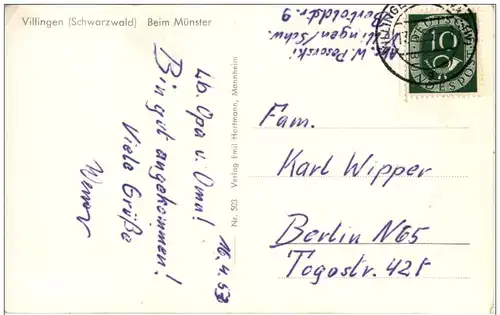 Villingen (Schwarzwald) Beim Münster
Abs. W. Posorski
Villingen/Schw.
Bertoldstr. 9
10
Lb. Opa u. Oma! 16.4.53
Bin gut angekommen!
Viele Grüße
Werner
Nr. 503 Verlag Emil Hartmann, Mannheim
Fam.
Karl Wipper
Berlin N65
Togostr. 42f